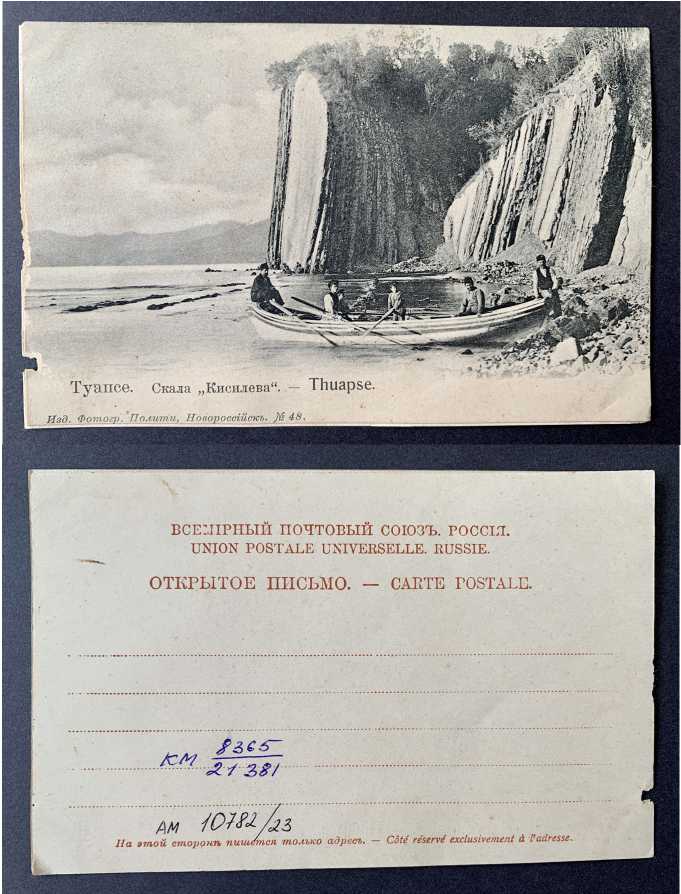 Туапсе. Скала „Кисилева“. — Thuapse.
Изд. Фотогр. Полити, Новороссійскъ. № 48.
ВСЕМІРНЫЙ ПОЧТОВЫЙ СОЮЗЪ. РОССІЯ.
UNION POSTALE UNIVERSELLE. RUSSIE.
ОТКРЫТОЕ ПИСЬМО. — CARTE POSTALE.
КМ 8365
21 381
АМ 10782/23
На этой сторонѣ пишется только адресъ. — Côté réservé exclusivement à l'adresse.